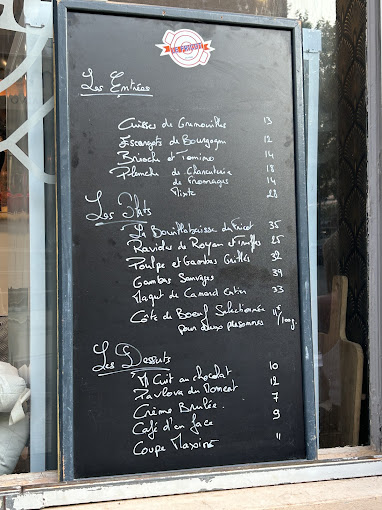 Les Entrées
Cuisses de Grenouilles 13
Escargots de Bourgogne 12
Brioche et Tomino 14
Planche de Charcuterie 18
de Fromages 14
Mixte 28
Les Plats
La Bouillabaisse du Fricot 35
Ravioles de Royan et truffes 25
Poulpe et Gambas Grillés 32
Gambas Sauvages 39
Magret de Canard Entier 33
Côte de Boeuf Selectionnée 11€
pour deux personnes /100g
Les Desserts
Mi Cuit au chocolat 10
Pavlova du Moment 12
Crème Brulée 7
Café d'en face 9
Coupe Maxims 11